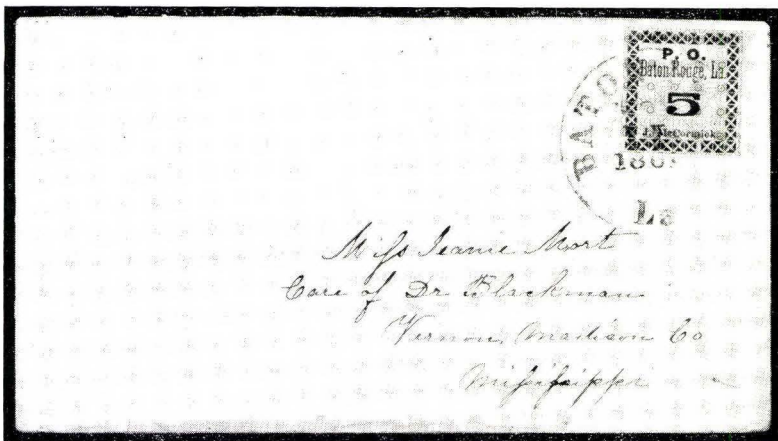 P. O.
Baton Rouge, La
5
J. McCormick
BATO
186
La
Miss Jeanie Mort
Care of Dr Blackman
Vernon, Madison Co
Mississippi